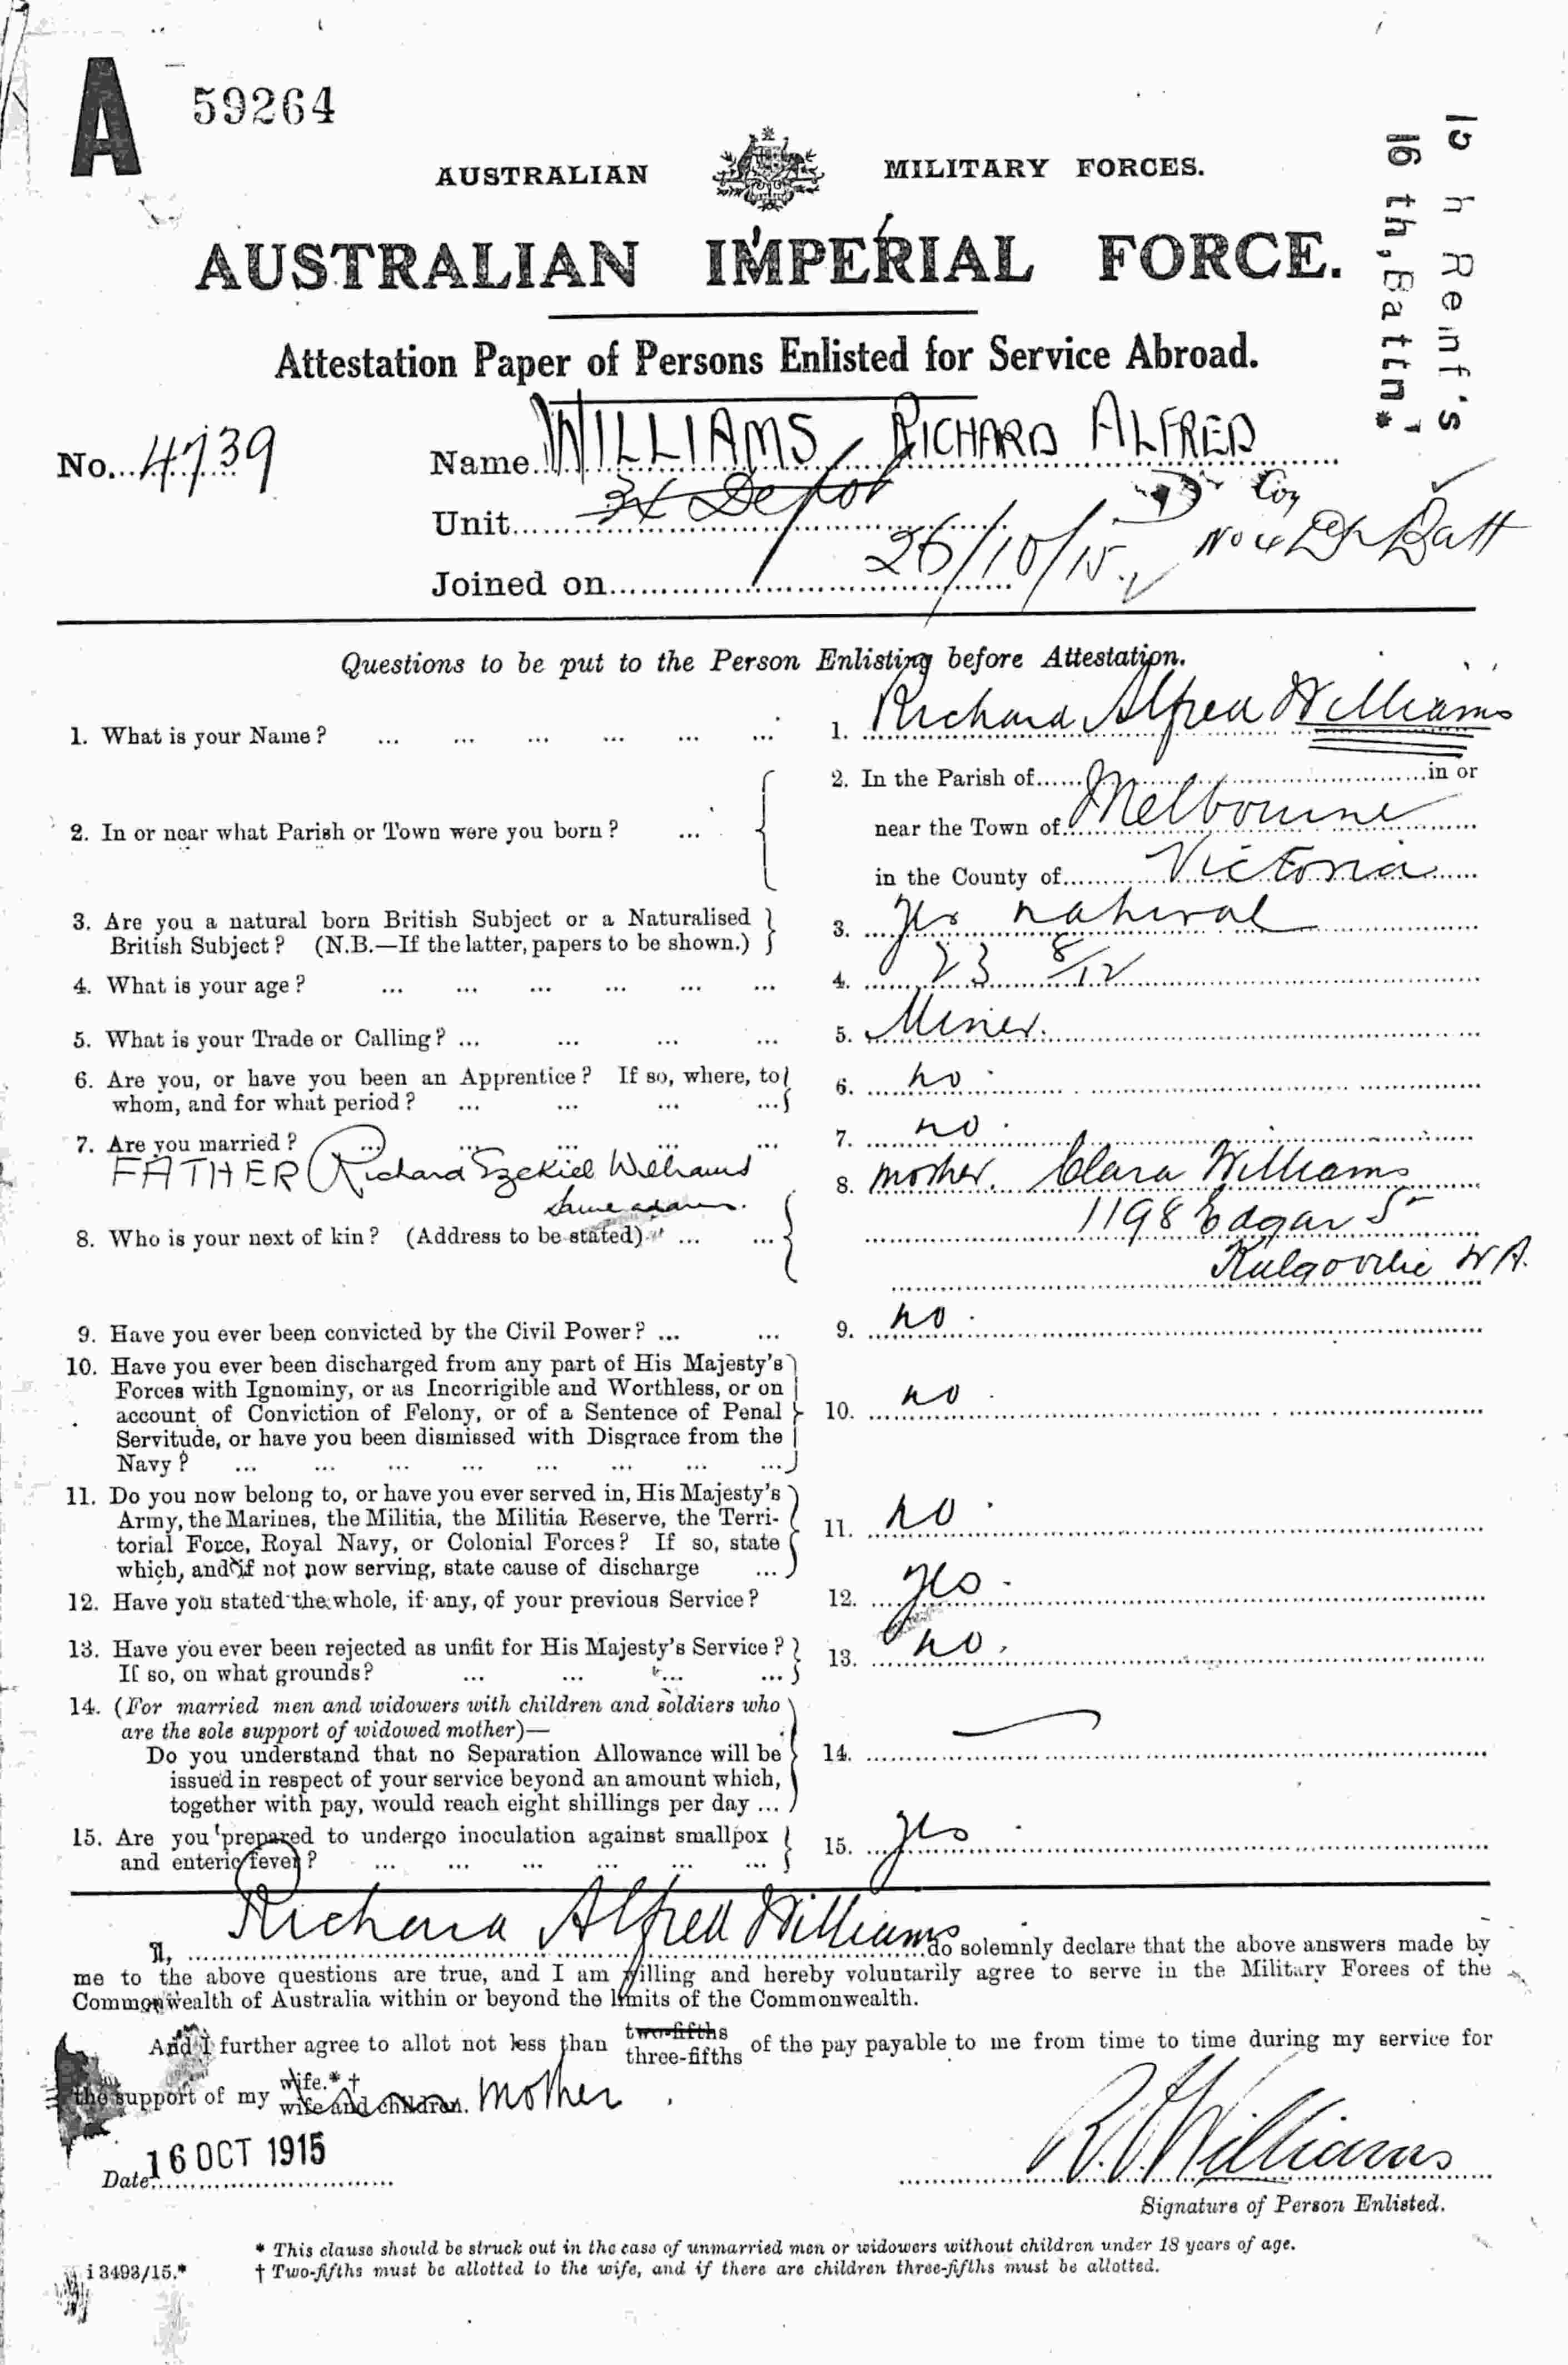 A 59264
AUSTRALIAN MILITARY FORCES.
15 h Reinf's
16 th, Battn.
AUSTRALIAN IMPERIAL FORCE.
Attestation Paper of Persons Enlisted for Service Abroad.
No. 4739 Name WILLIAMS, RICHARD ALFRED
Unit Depot D Coy No 4 Dep Batt
Joined on 26/10/15
Questions to be put to the Person Enlisting before Attestation.
1. What is your Name? ... ... ... ... ... ... 1. Richard Alfred Williams
2. In or near what Parish or Town were you born? ... 2. In the Parish of in or
near the Town of Melbourne
in the County of Victoria
3. Are you a natural born British Subject or a Naturalised
British Subject? (N.B.—If the latter, papers to be shown.) 3. yes natural
4. What is your age? ... ... ... ... ... ... 4. 23 8/12
5. What is your Trade or Calling? ... ... ... ... 5. Miner.
6. Are you, or have you been an Apprentice? If so, where, to
whom, and for what period? ... ... ... ... 6. no.
7. Are you married? ... ... ... ... ... 7. no.
FATHER Richard Ezekiel Williams
same address.
8. Who is your next of kin? (Address to be stated) ... ... 8. mother. Clara Williams
1198 Edgar St
Kalgoorlie W A.
9. Have you ever been convicted by the Civil Power? ... ... 9. no.
10. Have you ever been discharged from any part of His Majesty's
Forces with Ignominy, or as Incorrigible and Worthless, or on
account of Conviction of Felony, or of a Sentence of Penal
Servitude, or have you been dismissed with Disgrace from the
Navy? ... ... ... ... ... ... ... ... 10. no.
11. Do you now belong to, or have you ever served in, His Majesty's
Army, the Marines, the Militia, the Militia Reserve, the Terri-
torial Force, Royal Navy, or Colonial Forces? If so, state
which, and if not now serving, state cause of discharge ... 11. no.
12. Have you stated the whole, if any, of your previous Service? 12. yes.
13. Have you ever been rejected as unfit for His Majesty's Service?
If so, on what grounds? ... ... ... ... 13. no.
14. (For married men and widowers with children and soldiers who
are the sole support of widowed mother)—
Do you understand that no Separation Allowance will be
issued in respect of your service beyond an amount which,
together with pay, would reach eight shillings per day ... 14. —
15. Are you prepared to undergo inoculation against smallpox
and enteric fever? ... ... ... ... ... ... 15. yes.
I, Richard Alfred Williams do solemnly declare that the above answers made by
me to the above questions are true, and I am willing and hereby voluntarily agree to serve in the Military Forces of the
Commonwealth of Australia within or beyond the limits of the Commonwealth.
And I further agree to allot not less than two-fifths three-fifths of the pay payable to me from time to time during my service for
the support of my wife.*† wife and children. mother.
Date 16 OCT 1915
R.A. Williams
Signature of Person Enlisted.
* This clause should be struck out in the case of unmarried men or widowers without children under 18 years of age.
i 3493/15.* † Two-fifths must be allotted to the wife, and if there are children three-fifths must be allotted.